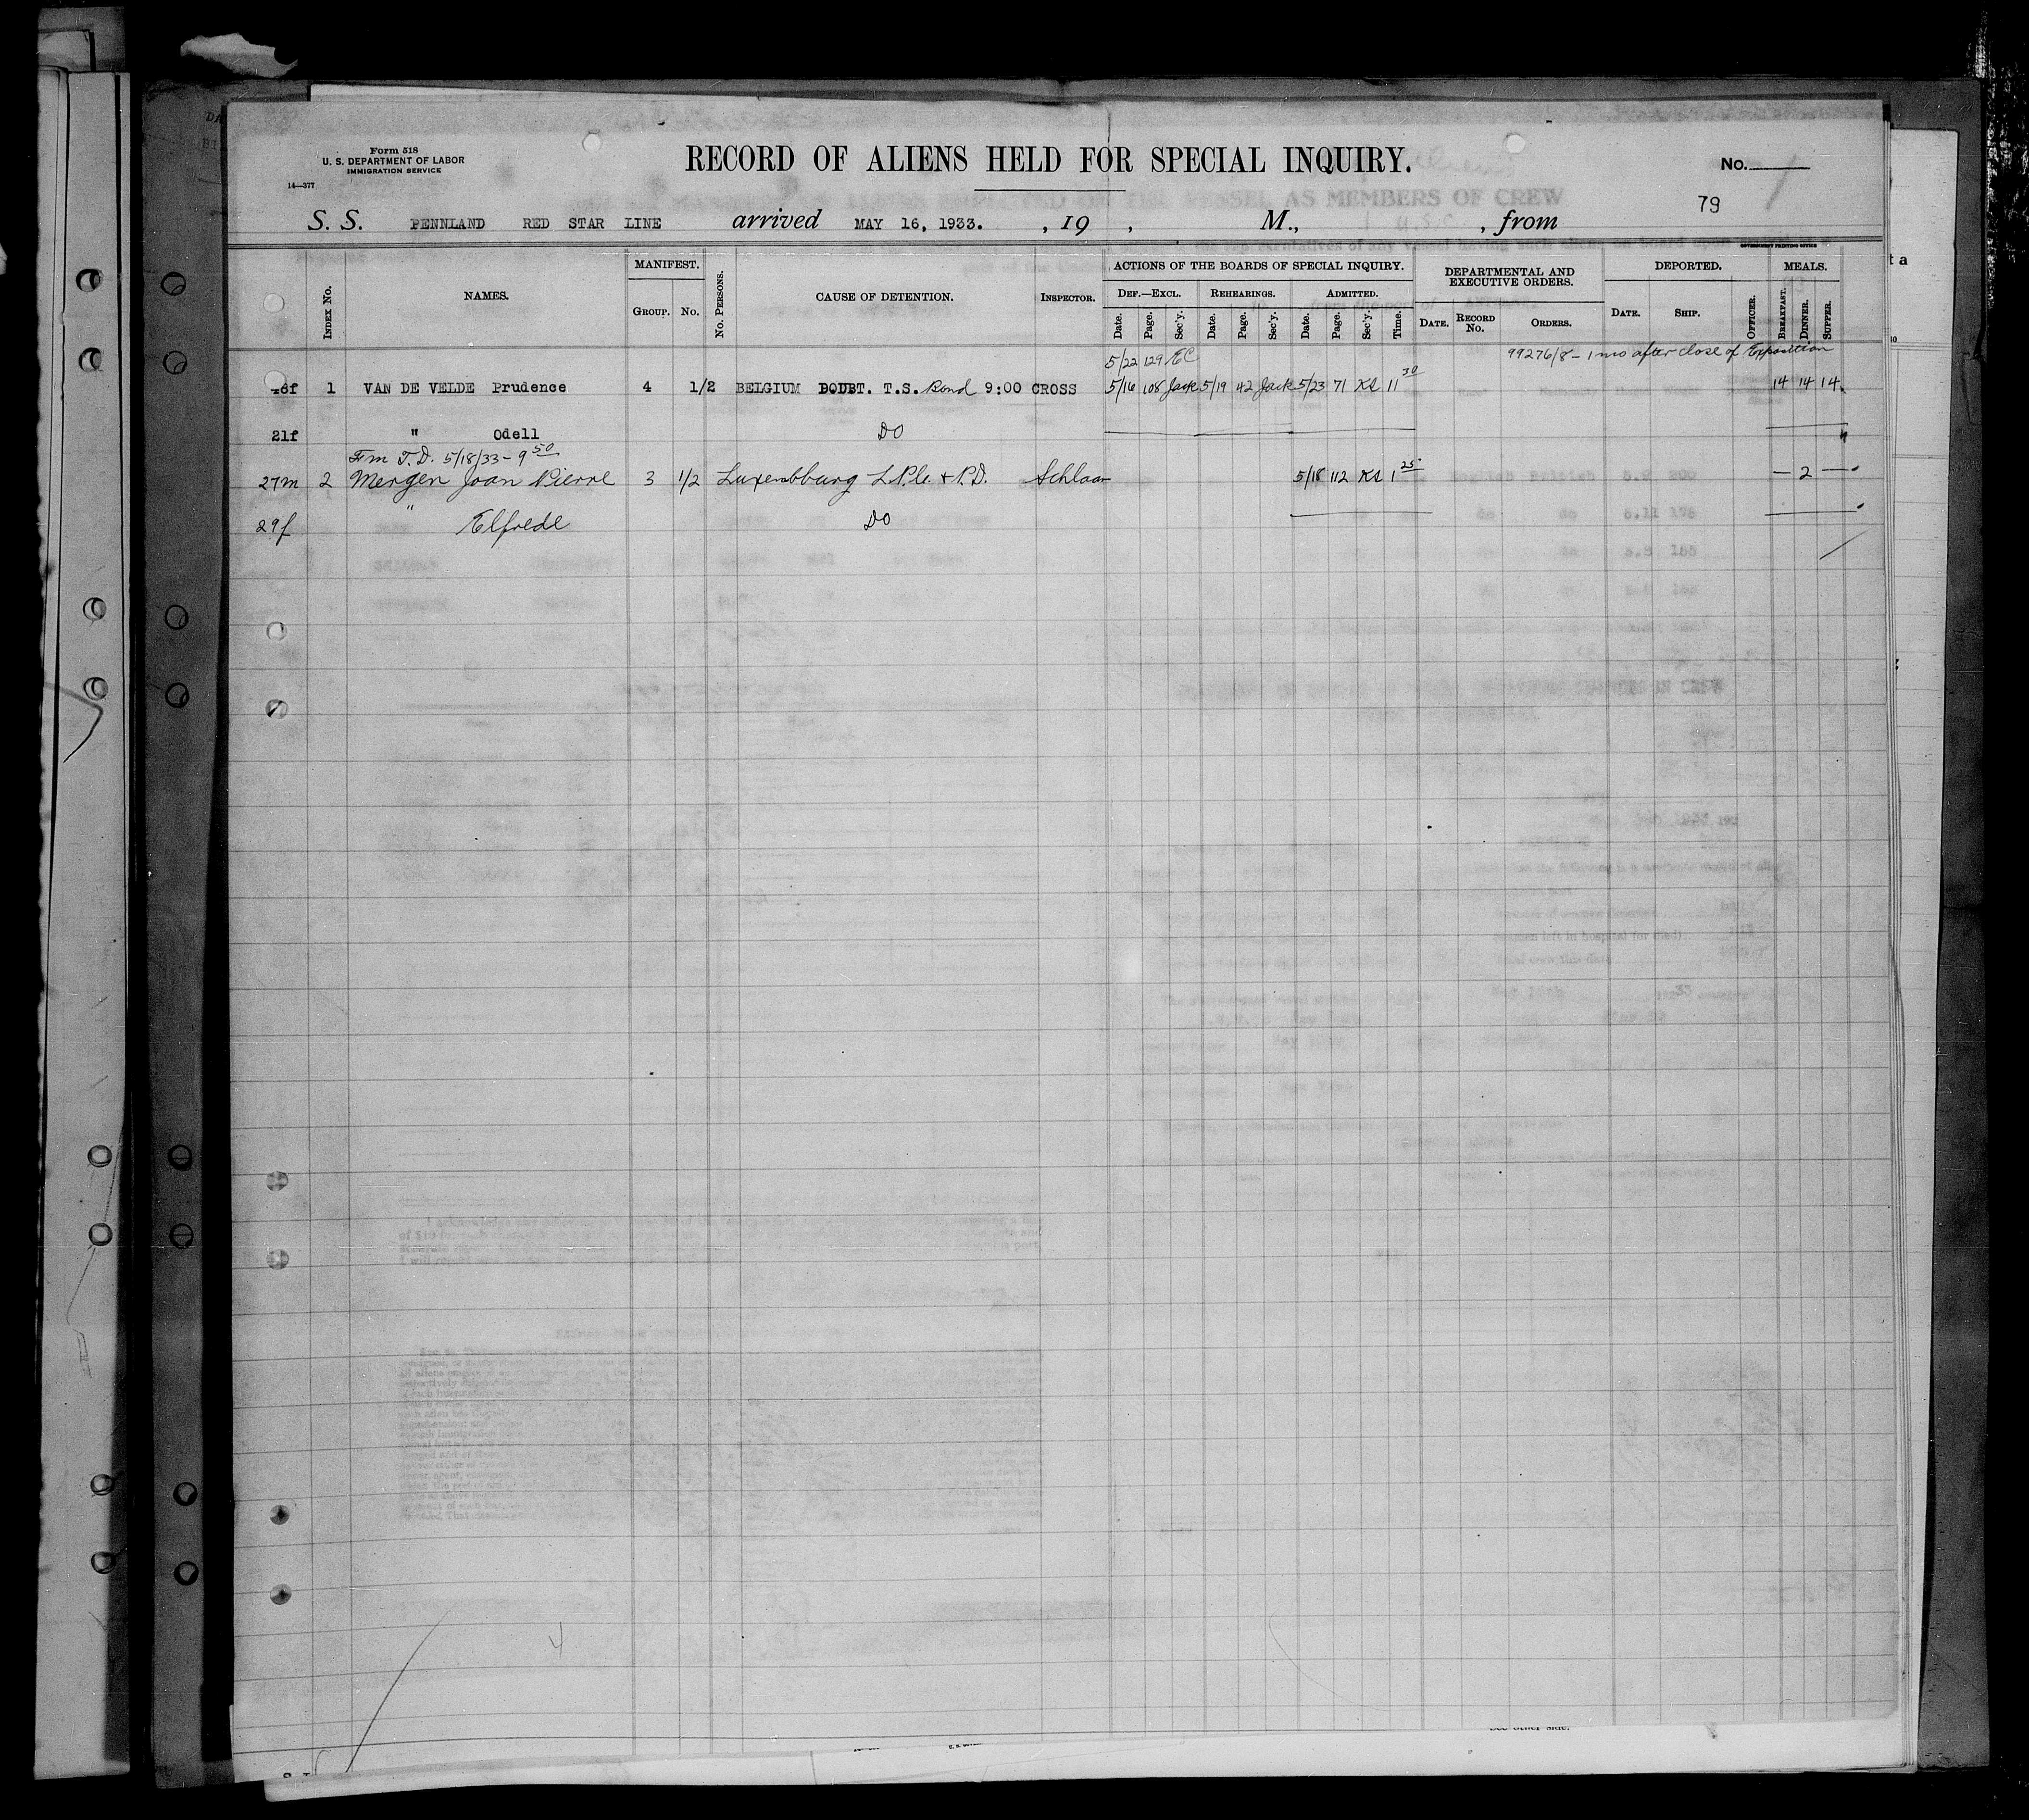 Form 518
U. S. DEPARTMENT OF LABOR
IMMIGRATION SERVICE
14—377
RECORD OF ALIENS HELD FOR SPECIAL INQUIRY.
No.
79
S. S. PENNLAND RED STAR LINE arrived MAY 16, 1933. , 19 , M., , from
GOVERNMENT PRINTING OFFICE
INDEX No. NAMES. MANIFEST. GROUP. No. No. PERSONS. CAUSE OF DETENTION. INSPECTOR. ACTIONS OF THE BOARDS OF SPECIAL INQUIRY. DEPARTMENTAL AND EXECUTIVE ORDERS. DEPORTED. MEALS.
DEF.—EXCL. REHEARINGS. ADMITTED.
Date. Page. Sec'y. Date. Page. Sec'y. Date. Page. Sec'y. Time. DATE. RECORD No. ORDERS. DATE. SHIP. OFFICER. BREAKFAST. DINNER. SUPPER.
5/22 129 EC 99276/8 - 1 mo after close of Exposition
1 VAN DE VELDE Prudence 4 1/2 BELGIUM DOUBT. T.S. Bond 9:00 CROSS 5/16 108 Jack 5/19 42 Jack 5/23 71 KS 11 30 14 14 14
21f " Odell DO
Fm T.D. 5/18/33 - 9 50
27m 2 Mergen Jean Pierre 3 1/2 Luxembburg L.P.C. + P.D. Schlaan 5/18 112 KS 1 25 — 2 —
29f " Elfrede DO